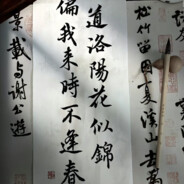 松竹留因夏溪山去為
道洛陽花似錦
偏我來時不逢春
景載与謝公遊